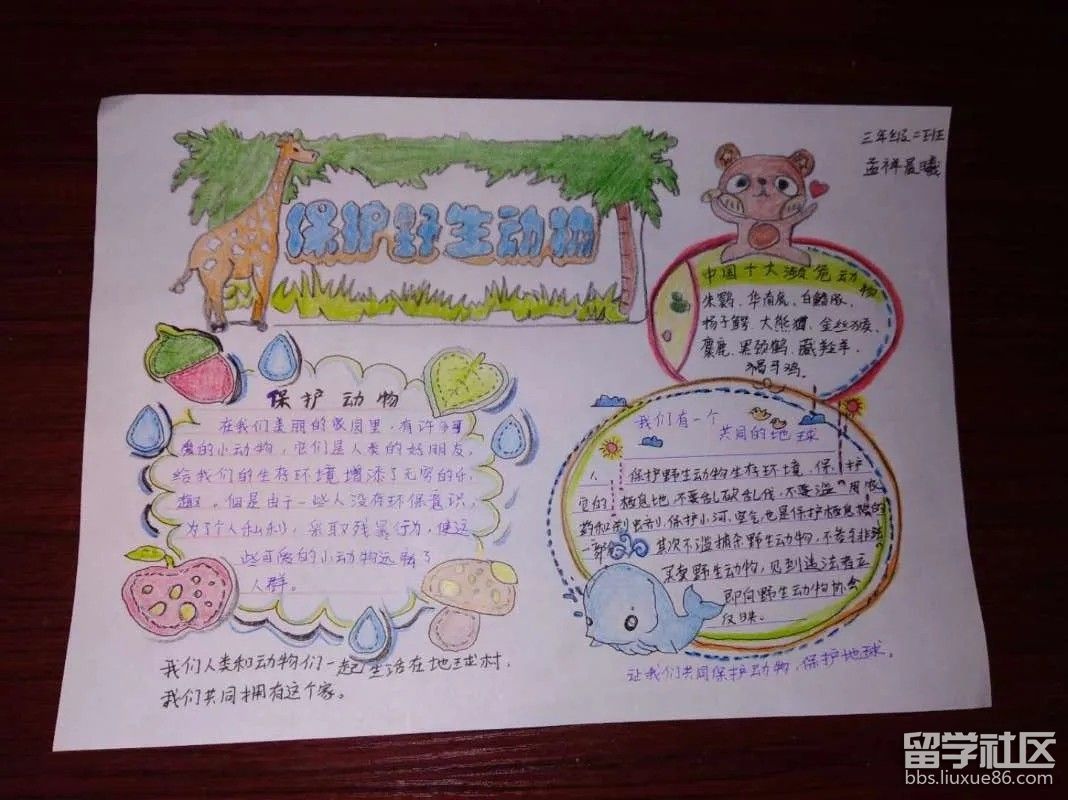 三年级二班
孟祥晨曦
保护野生动物
中国十大濒危动物
朱鹮、华南虎、白鳍豚、
杨子鳄、大熊猫、金丝猴、
麋鹿、黑颈鹤、藏羚羊、
褐马鸡。
保护动物
在我们美丽的家园里,有许多可
爱的小动物,它们是人类的好朋友,
给我们的生存环境增添了无穷的乐
趣。但是由于一些人没有环保意识,
为了个人私利,采取残暴行为,使这
些可爱的小动物远离了
人群。
我们人类和动物们一起生活在地球村,
我们共同拥有这个家。
我们有一个
共同的地球
1、保护野生动物生存环境,保护
它的栖息地,不要乱砍乱伐,不要滥用农
药和杀虫剂,保护小河,空气也是保护栖息地的
一部分。其次不滥捕杀野生动物,不参与非法
买卖野生动物,见到违法者立
即向野生动物协会
反映。
让我们共同保护动物,保护地球。
留学社区
bbs.liuxue86.com